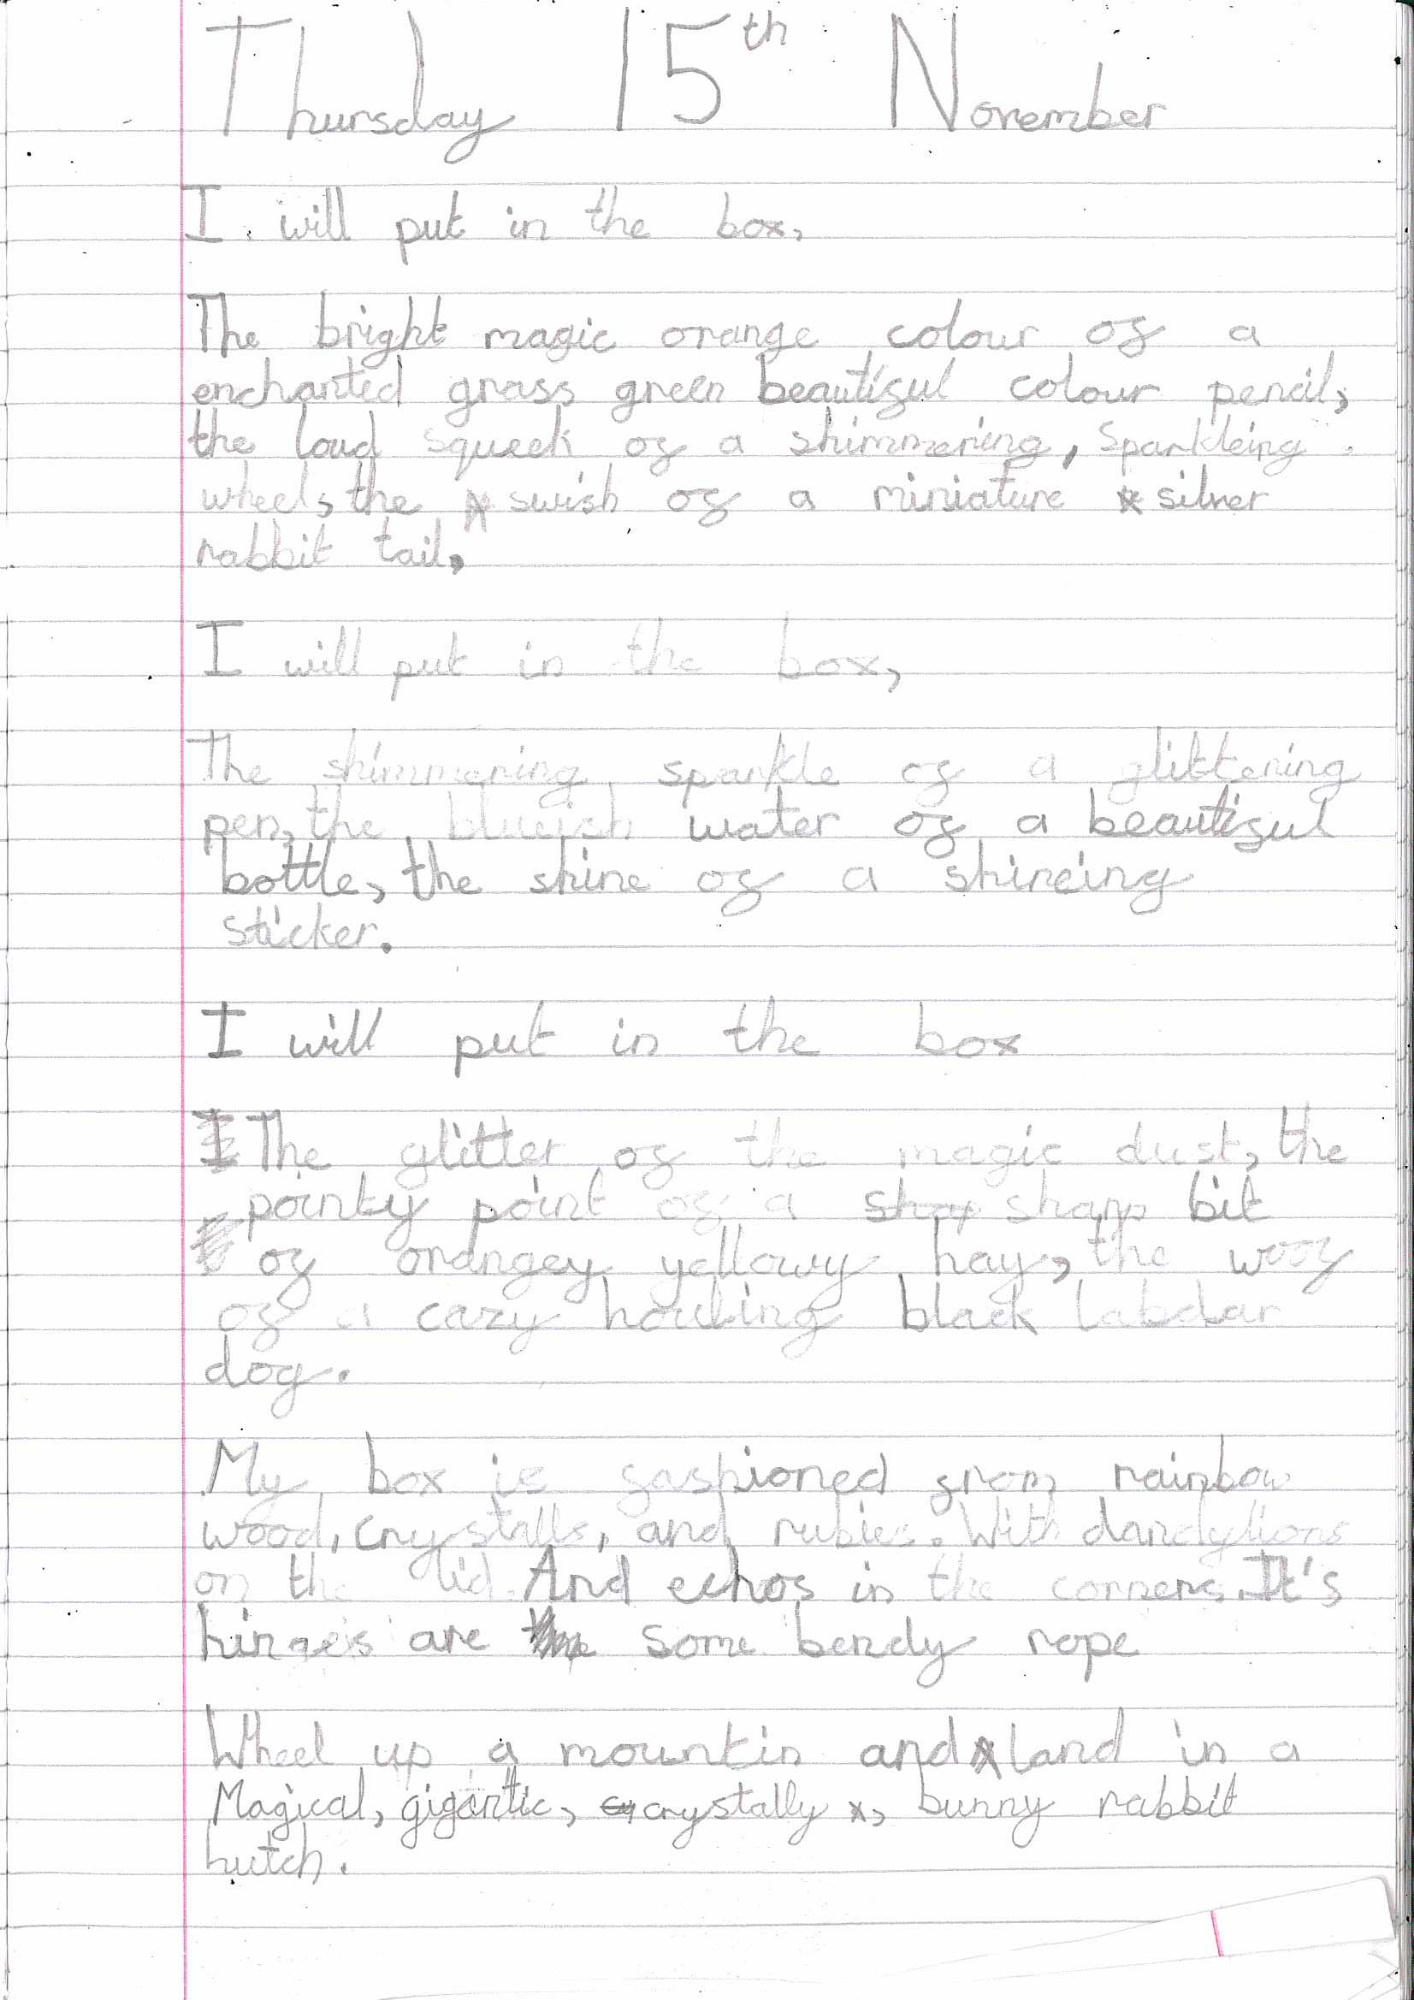 Thursday 15th November
I will put in the box,
The bright magic orange colour of a
enchanted grass green beautiful colour pencil,
the loud squeek of a shimmering, sparkleing
wheel, the swish of a miniature silver
rabbit tail,
I will put in the box,
The shimmering sparkle of a glittering
pen, the blueish water of a beautiful
bottle, the shine of a shineing
sticker.
I will put in the box
The glitter of the magic dust, the
pointy point of a sharp bit
of orangey yellowy hay, the woof
of a cazy howling black labdar
dog.
My box is fashioned from rainbow
wood, crystalls, and rubies. With dandylions
on the lid. And echos in the corners. It's
hinges are some bendy rope
Wheel up a mountin and land in a
Magical, gigantic, crystally, bunny rabbit
hutch.